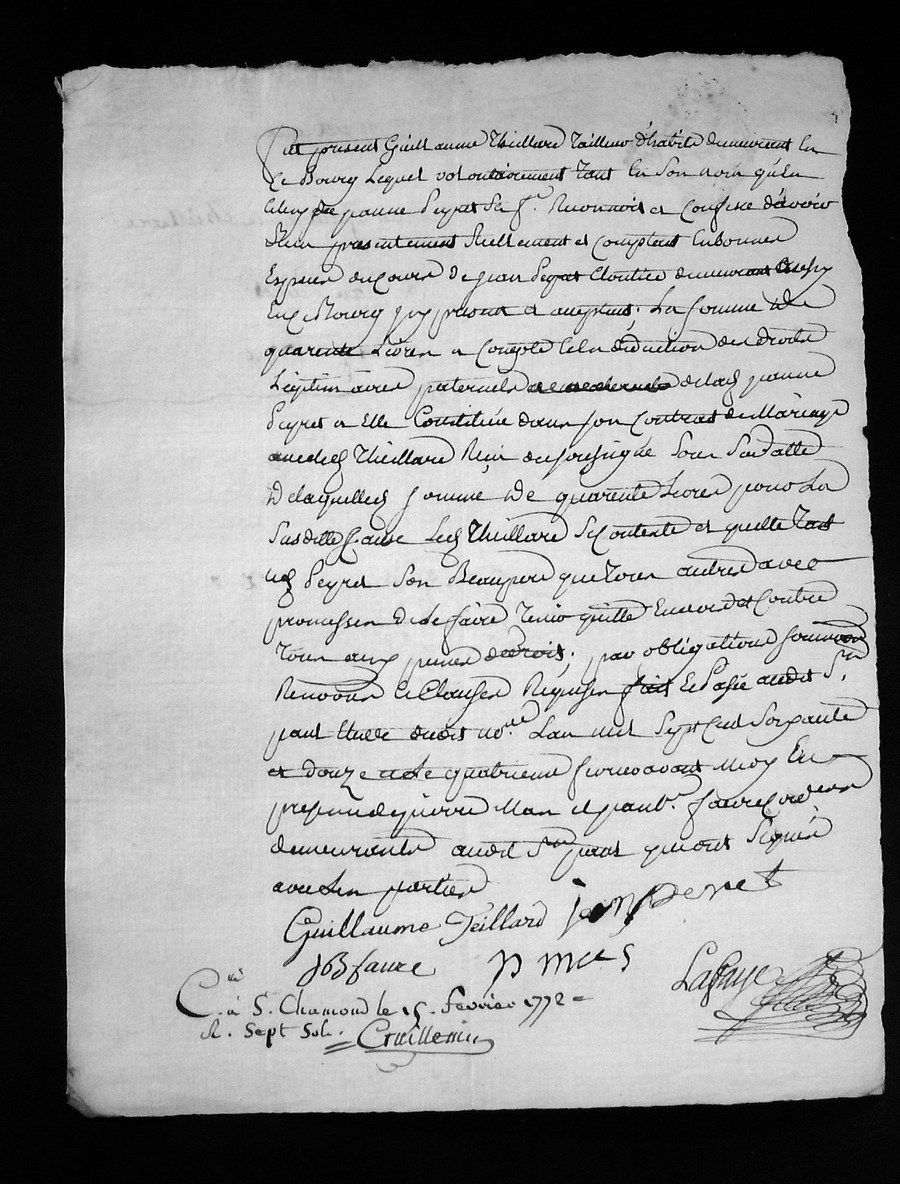 Fut present Guillaume Theillard Tailleur d'habits demeurant en
Ce Bourg Lequel volontairement tant En Son nom qu'En
Celuy de jeanne Peyret Sa f.e Reconnoit et Confesse d'avoir
Reçu presentement Reellement et Comptant En bonnes
Especes du Cours de jean Peyret Cloutier demeurant aussy
En Ce Bourg ycy present et acceptant, La somme de
quarente Livres a Compte et En deduction des droits
Légitimaires paternels de lad jeanne
Peyret a Elle Constitués dans son Contrat de Mariage
avec led Theillard Reçu du soussigné Sous Sa datte
De laquelled somme de quarente Livres pour La
Susditte Cause Led Theillard Se Contente et quitte Tant
led Peyret Son Beaupere que Tous autres avec
promesses de Le faire Tenir quitte Envers et Contre
Tous aux peines de droit, par obligations soumissions
Renoons et Clauses Requises fait Et Passé audit St
paul Etude dudit no.re L'an mil Sept Cent Soixante
et douze et Le quatrieme fevrier avant Midy En
presence de pierre Mas et jean b.te faure
demeurants audit St paul qui ont Signés
avec Les parties
Guillaume Teillard jean Peret
JB faure P mas
Lafaye
C.lé à S.t Chamond le 15. Février 1772
R. Sept Sols.